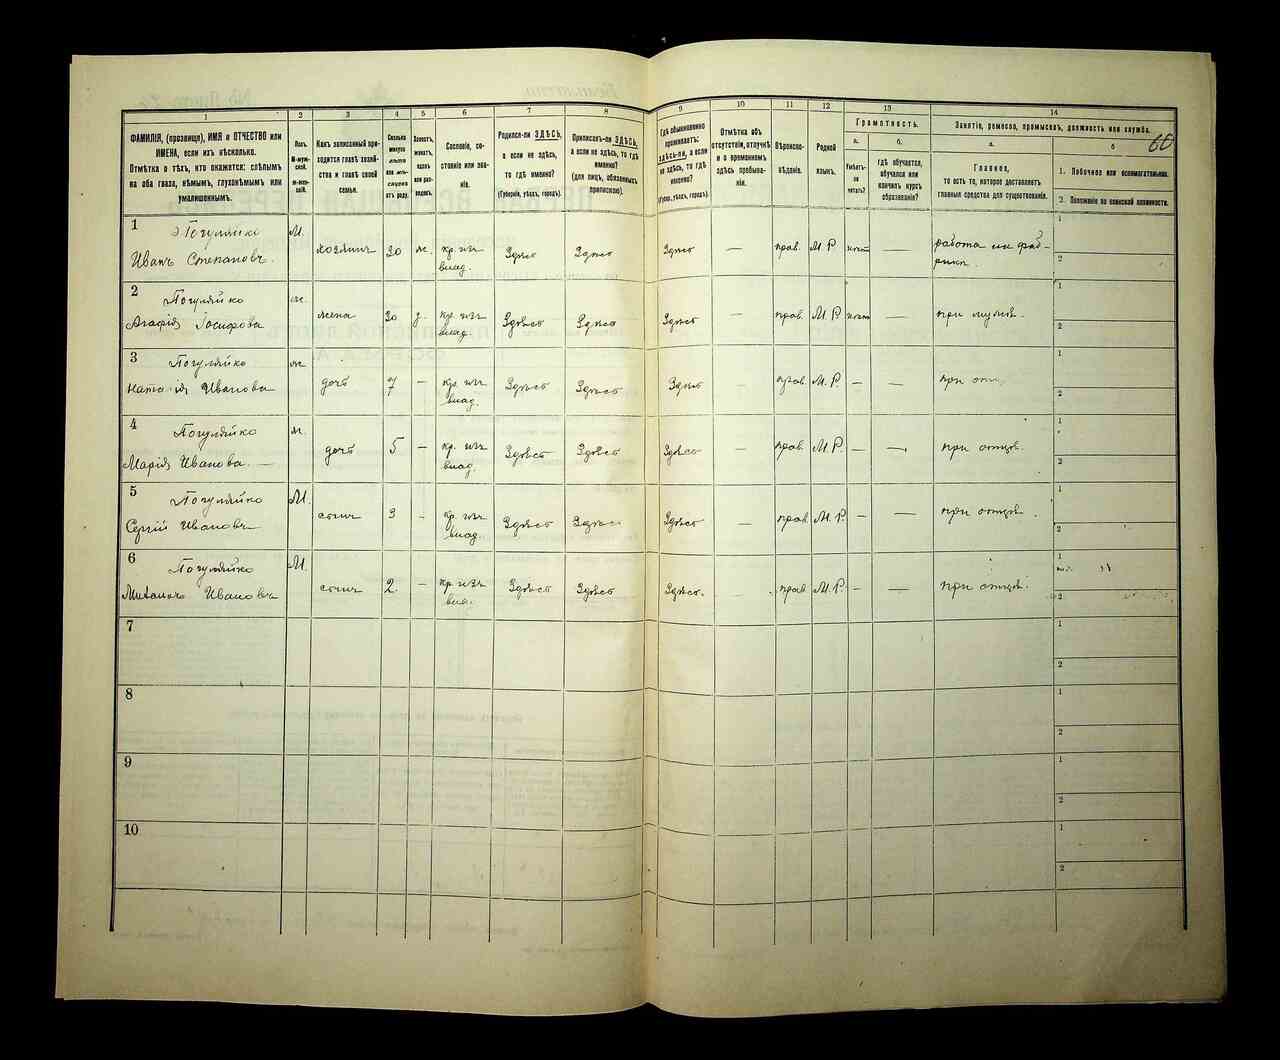 1
2
3
4
5
6
7
8
9
10
11
12
13
14
60
ФАМИЛІЯ, (прозвище), ИМЯ и ОТЧЕСТВО или
ИМЕНА, если ихъ нѣсколько.
Отмѣтка о тѣхъ, кто окажется: слѣпымъ
на оба глаза, нѣмымъ, глухонѣмымъ или
умалишеннымъ.
Полъ.
М-мужской.
Ж-женскій.
Какъ записанный приходится главѣ хозяйства и главѣ своей
семьи.
Сколько
минуло
лѣтъ
или мѣсяцевъ
отъ роду.
Холостъ,
женатъ,
вдовъ
или разведенъ.
Сословіе, состояніе или званіе.
Родился-ли ЗДѢСЬ,
а если не здѣсь,
то гдѣ именно?
(Губернія, уѣздъ, городъ).
Приписанъ-ли ЗДѢСЬ,
а если не здѣсь, то гдѣ
именно?
(для лицъ, обязанныхъ
припискою).
Гдѣ обыкновенно
проживаетъ:
ЗДѢСЬ-ЛИ, а если
не здѣсь, то гдѣ
именно?
(Губер., уѣздъ, городъ).
Отмѣтка объ
отсутствіи, отлучкѣ
и о временномъ
здѣсь пребываніи.
Вѣроисповѣданіе.
Родной
языкъ.
Грамотность.
а.
Умѣетъ-ли
читать?
б.
гдѣ обучается,
обучался или
кончилъ курсъ
образованія?
Занятіе, ремесло, промыселъ, должность или служба.
а.
Главное,
то есть то, которое доставляетъ
главныя средства для существованія.
б
1. Побочное или вспомогательное.
2. Положеніе по воинской повинности.
1 Погуляйко М.
Иванъ Степановъ. хозяинъ 30 ж. кр. изъ влад. Здѣсь Здѣсь Здѣсь — прав. М. Р. нѣтъ — работа на фабрикѣ. 1 2
2 Погуляйко ж.
Агафія Іосифова жена 30 з. кр. изъ влад. Здѣсь Здѣсь Здѣсь — прав. М. Р. нѣтъ — при мужѣ. 1 2
3 Погуляйко ж.
Наталія Иванова дочь 7 — кр. изъ влад. Здѣсь Здѣсь Здѣсь — прав. М. Р. — — при 1 2
4 Погуляйко ж.
Марія Иванова. — дочь 5 — кр. изъ влад. Здѣсь Здѣсь Здѣсь — прав. М. Р. — — при отцѣ. 1 2
5 Погуляйко М.
Сергій Ивановъ сынъ 3 - кр. изъ влад. Здѣсь Здѣсь Здѣсь — прав. М. Р. — — при отцѣ. 1 2
6 Погуляйко М.
Ивановъ сынъ 2. — кр. изъ Здѣсь Здѣсь Здѣсь. — прав. М. Р. — — при отцѣ. 1 2
7 1 2
8 1 2
9 1 2
10 1 2